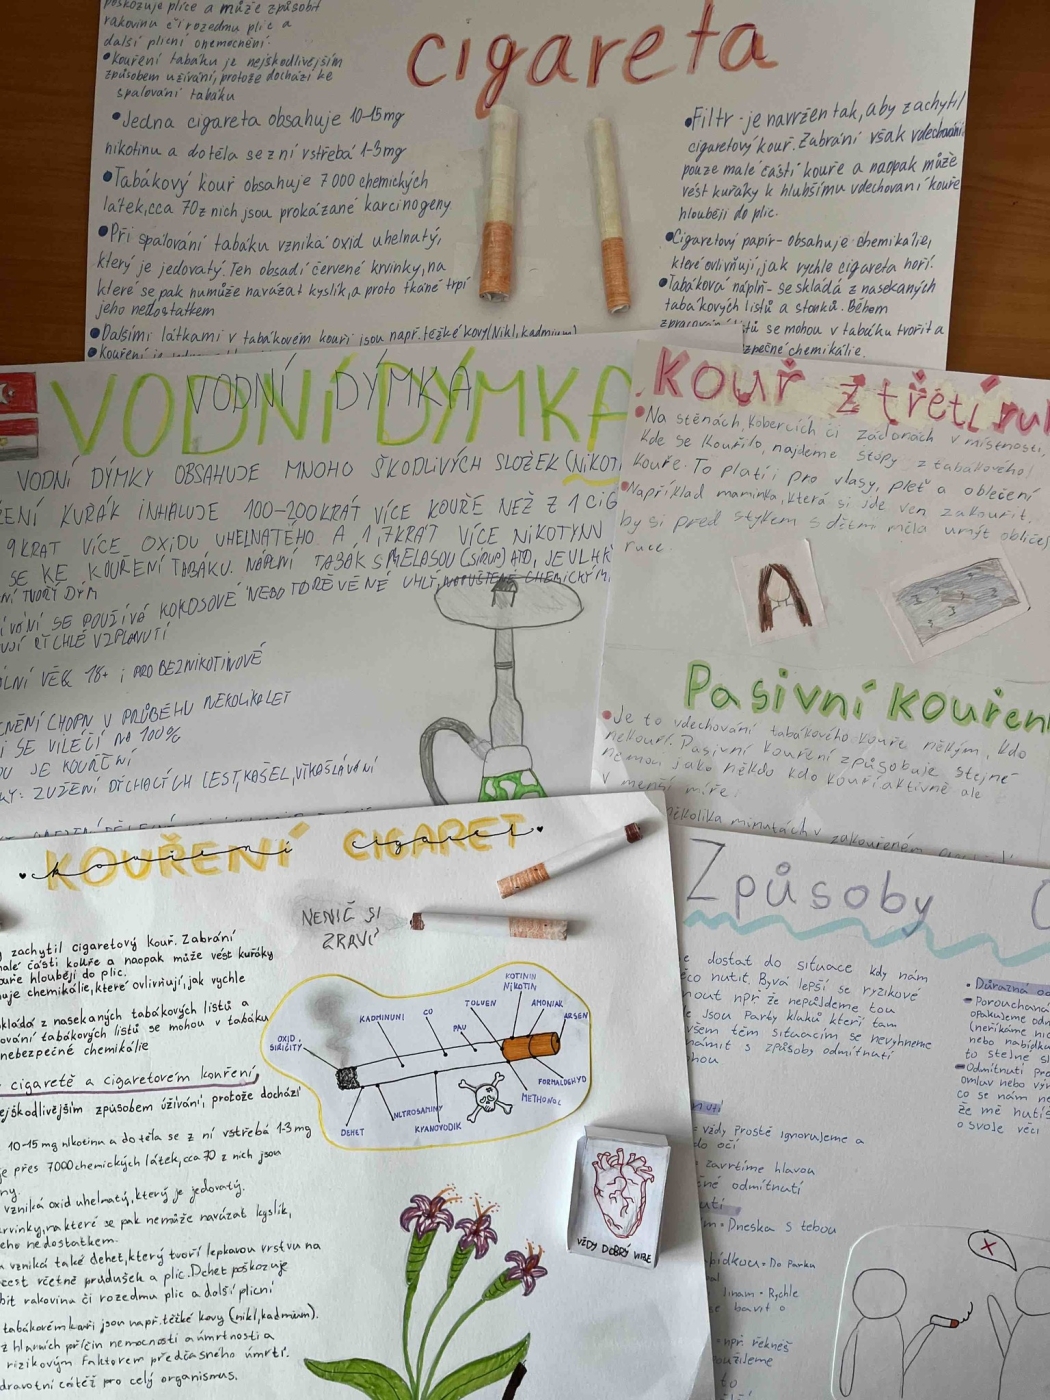 poškozuje plíce a může způsobit
rakovina či rozedmu plic a
další plicní onemocnění.
•Kouření tabáku je nejškodlivějším
způsobem užívání, protože dochází ke
spalování tabáku
•Jedna cigareta obsahuje 10-15mg
nikotinu a do těla se z ní vstřebá 1-3mg
•Tabákový kouř obsahuje 7000 chemických
látek, cca 70 z nich jsou prokázané karcinogeny
•Při spalování tabáku vzniká oxid uhelnatý,
který je jedovatý. Ten obsadí červené krvinky, na
které se pak nemůže navázat kyslík, a proto tkáně trpí
jeho nedostatkem
•Dalšími látkami v tabákovém kouři jsou např. těžké kovy(Nikl, kadmium)
•Kouření je
cigareta
•Filtr - je navržen tak, aby zachytil
cigaretový kouř. Zabrání však vdechování
pouze malé části kouře a naopak může
vést kuřáky k hlubšímu vdechovaní kouře
hlouběji do plic.
•Cigaretový papír - obsahuje chemikálie,
které ovlivňují, jak rychle cigareta hoří.
•Tabáková náplň - se skládá z nasekaných
tabákových listů a stonků. Během
zpracování listů se mohou v tabáku tvořit a
zpečné chemikálie.
VODNÍ DÝMKA
VODNÍ DÝMKA
VODNÍ DÝMKY OBSAHUJE MNOHO ŠKODLIVÝCH SLOŽEK (NIKOTI
ENÍ KUŘÁK INHALUJE 100-200KRÁT VÍCE KOUŘE NEŽ Z 1 CIG
9KRÁT VÍCE OXIDU UHELNATÉHO A 1,7KRÁT VÍCE NIKOTYNU
SE KE KOUŘENÍ TABÁKU. NÁPLNÍ TABÁK S MELASOU (SIRUP) ATD, JE VLHK
NÍ TVOŘÍ DÝM
SE POUŽÍVÁ KOKOSOVÉ NEBO DŘEVĚNÉ UHLÍ, NAPUŠTĚNÉ CHEMICKÝMI
RYCHLÉ VZPLANUTÍ
LNÍ VĚK 18+ i PRO BEZNIKOTINOVÉ
CNĚNÍ CHOPN V PRŮBĚHU NĚKOLIKA LET
SE VÍLÉČÍ NA 100%
OU JE KOUŘENÍ
KY: ZÚŽENÍ DÝCHACÍCH CEST, KAŠEL, VIKAŠLÁVÁNÍ
Kouř z třetí ru
•Na stěnách, kobercích či záclonách v místnosti,
kde se kouřilo, najdeme stopy z tabákového
kouře. To platí i pro vlasy, pleť a oblečení
•Například maminka, která si jde ven zakouřit,
by si před stykem s dětmi měla umýt obličej
ruce.
Pasivní kouřen
•Je to vdechování tabákového kouře někým, kdo
nekouří. Pasivní kouření způsobuje stejné
nemoci jako někdo kdo kouří aktivně ale
v menší míře.
několika minutách v zakouřeném
KOUŘENÍ CIGARET
kouření cigaret
NENIČ SI
ZRAVÍ
zachytil cigaretový kouř. Zabrání
malé části kouře a naopak může vést kuřáky
kouře hlouběji do plic.
huje chemikálie, které ovlivňují, jak rychle
skládá z nasekaných tabákových listů a
ování tabákových listů se mohou v tabáku
nebezpečné chemikálie
cigaretě a cigaretovém kouření
ejškodlivějším způsobem užívání, protože dochází
10-15 mg nikotinu a do těla se z ní vstřebá 1-3 mg
je přes 7000 chemických látek, cca 70 z nich jsou
ny
vzniká oxid uhelnatý, který je jedovatý.
krvinky, na které se pak nemůže navázat kyslík,
jeho nedostatkem.
vzniká také dehet, který tvoří lepkavou vrstvu na
cest včetně průdušek a plic. Dehet poškozuje
bit rakovina či rozedmu plic a další plicní
tabákovém kouři jsou např. těžké kovy (nikl, kadmium).
z hlavních příčin nemocnosti a úmrtnosti a
rizikovým faktorem předčasného úmrtí.
dravotní zátěž pro celý organismus.
OXID
SIŘIČITÝ
KADMIUNI
CO
PAU
TOLUEN
KOTININ
NIKOTIN
AMONIAK
ARSEN
FORMALDEHYD
METHONOL
KYANOVODIK
NITROSAMINY
DEHET
VŽDY DOBRÝ VIBE
Způsoby O
dostat do situace kdy nám
ěco nutit. Bývá lepší se rizikové
nout npř že nepůjdeme tou
jsou Party kluků kteří tam
všem těm situacím se nevyhneme
námit s způsoby odmítnutí
hou
nutí
vždy prostě ignorujeme a
do očí
zavrtíme hlavou
né odmítnutí
utí
m • Dneska s tebou
bídkou • Do Parku
Rychle
se bavit o
npř. řekněš
použijeme
to
• Důrazná od
• Porouchaná
opakujeme odm
(neříkáme nic
nebo nabídku
to stejné sl
• Odmítnutí pro
omluv nebo výr
co se nám ne
že mě nutíš
o svoje věci